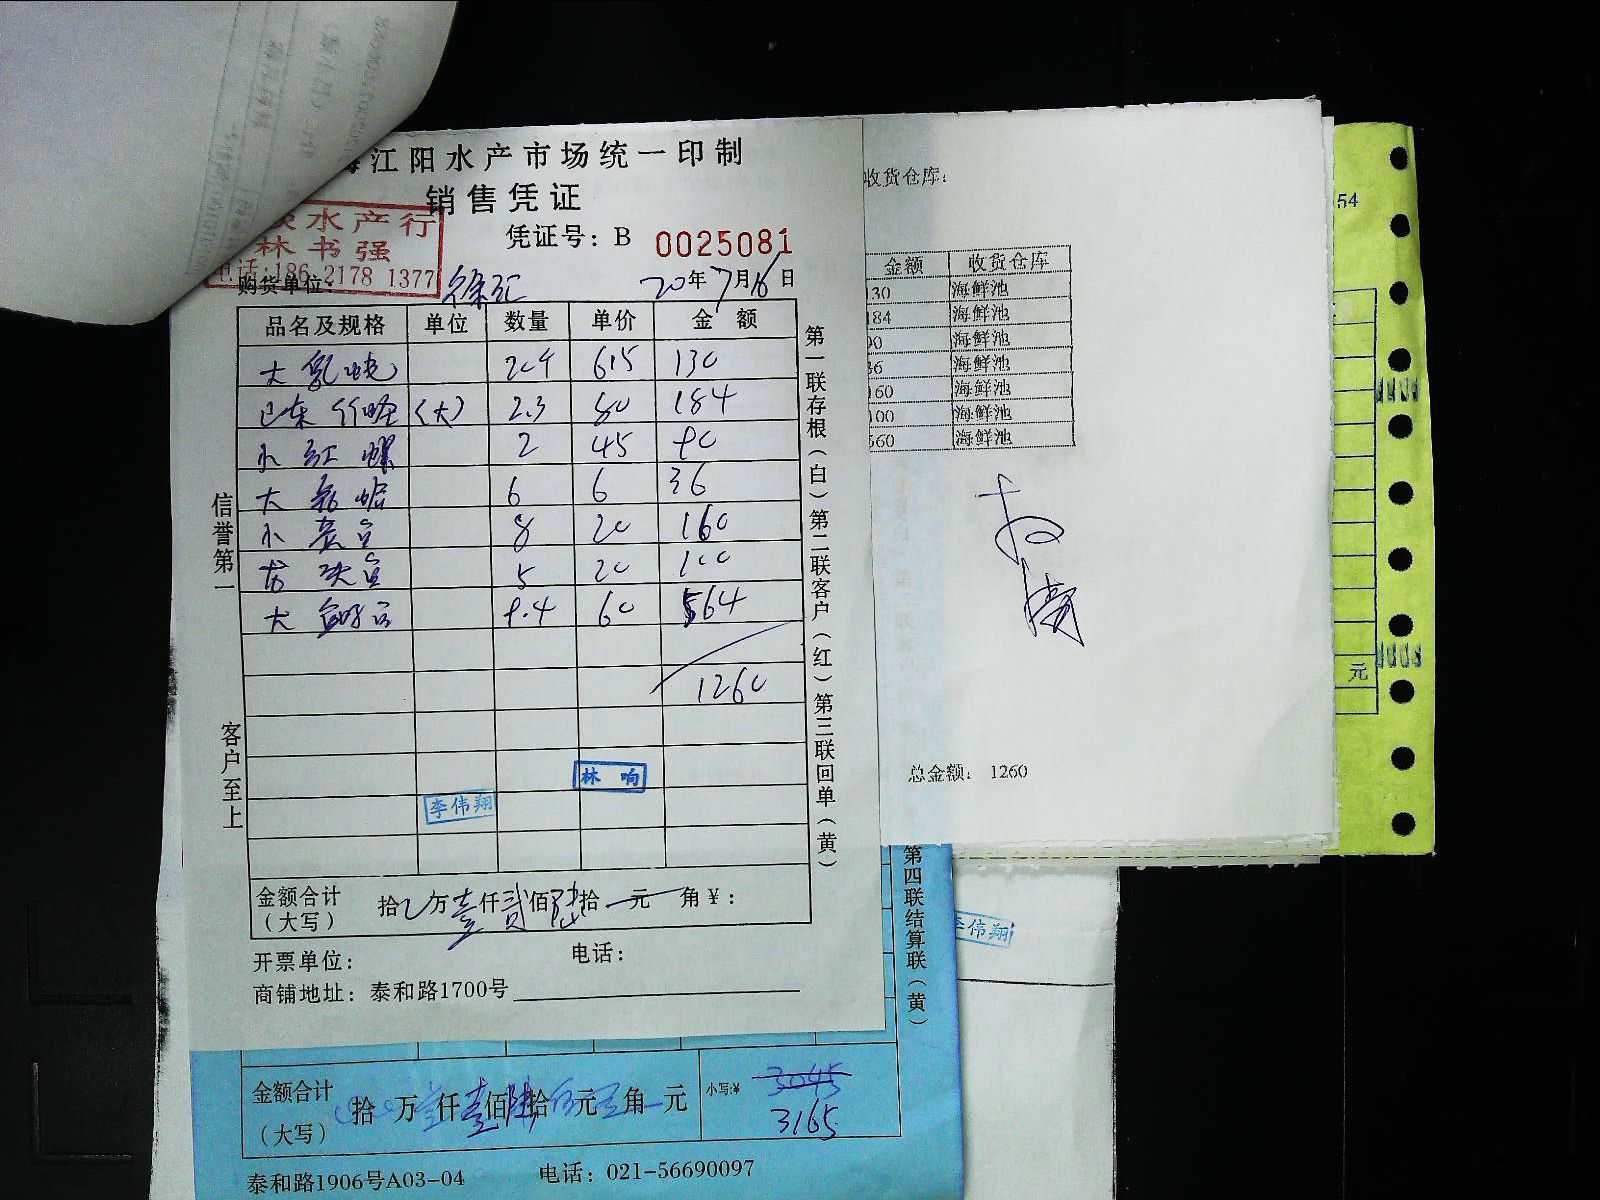 江阳水产市场统一印制
销售凭证
水产行
林书强
电话:186 2178 1377
凭证号：B 0025081
购货单位： 徐汇
20年7月16日
品名及规格 单位 数量 单价 金 额
大 130
(大) 2.3 80 184
小红螺 2 45 90
大 6 6 36
小 8 20 160
5 20 100
大 9.4 60 564
1260
林响
李伟翔
金额合计（大写） 拾 万壹仟贰佰陆拾 元 角￥：
开票单位： 电话：
商铺地址：泰和路1700号
信誉第一
客户至上
第一联存根（白）第二联客户（红）第三联回单（黄）
收货仓库：
金额 收货仓库
130 海鲜池
184 海鲜池
90 海鲜池
36 海鲜池
160 海鲜池
100 海鲜池
560 海鲜池
总金额： 1260
54
元
第四联结算联（黄）
李伟翔
金额合计（大写） 拾 万 仟壹佰陆拾 元 角 元 小写:￥ 3045
3165
泰和路1906号A03-04 电话：021-56690097